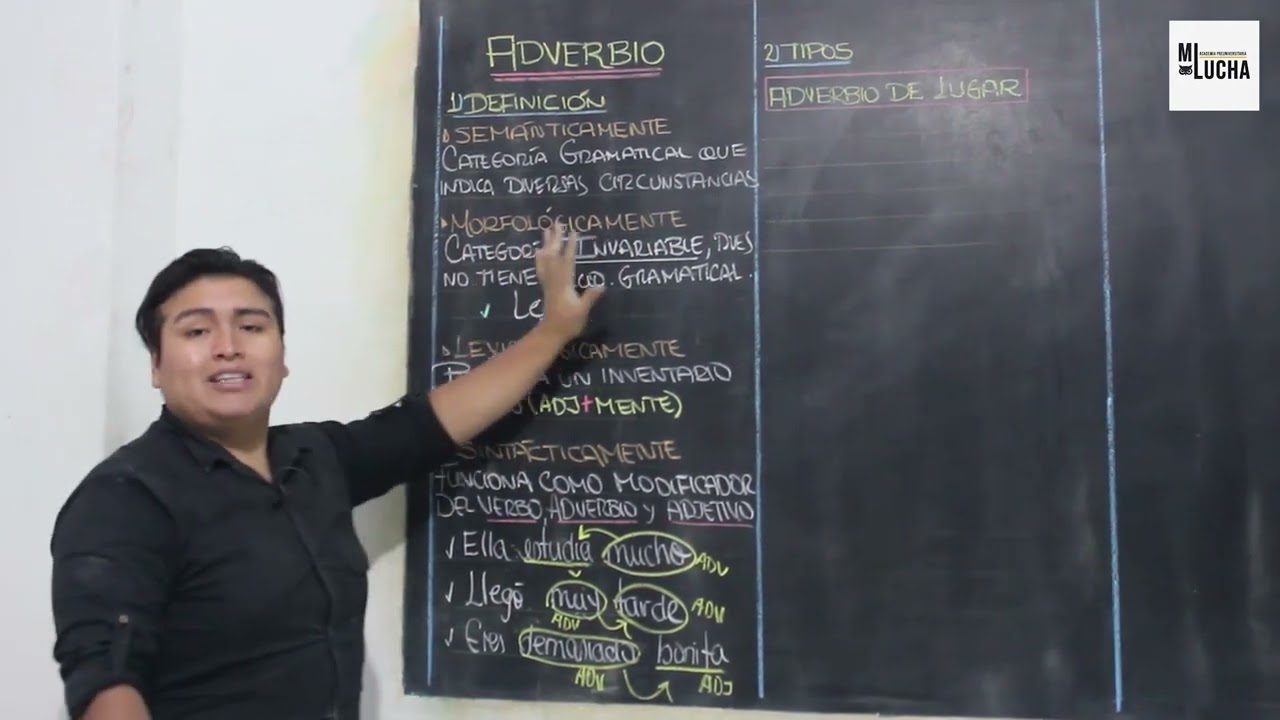 ADVERBIO
1) DEFINICIÓN
SEMÁNTICAMENTE
CATEGORÍA GRAMATICAL QUE
INDICA DIVERSAS CIRCUNSTANCIAS
MORFOLÓGICAMENTE
INVARIABLE, PUES
NO TIENE GRAMATICAL.
UN INVENTARIO
(ADJ+MENTE)
SINTÁCTICAMENTE
FUNCIONA COMO MODIFICADOR
DEL VERBO, ADVERBIO Y ADJETIVO
✓ Ella estudia mucho ADV
✓ Llegó muy tarde ADV
ADV
✓ Eres demasiado bonita
ADV ADJ
2) TIPOS
ADVERBIO DE LUGAR
MI
ACADEMIA PREUNIVERSITARIA
LUCHA